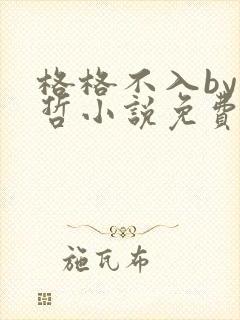 格格不入by
哲小説免費
施瓦布